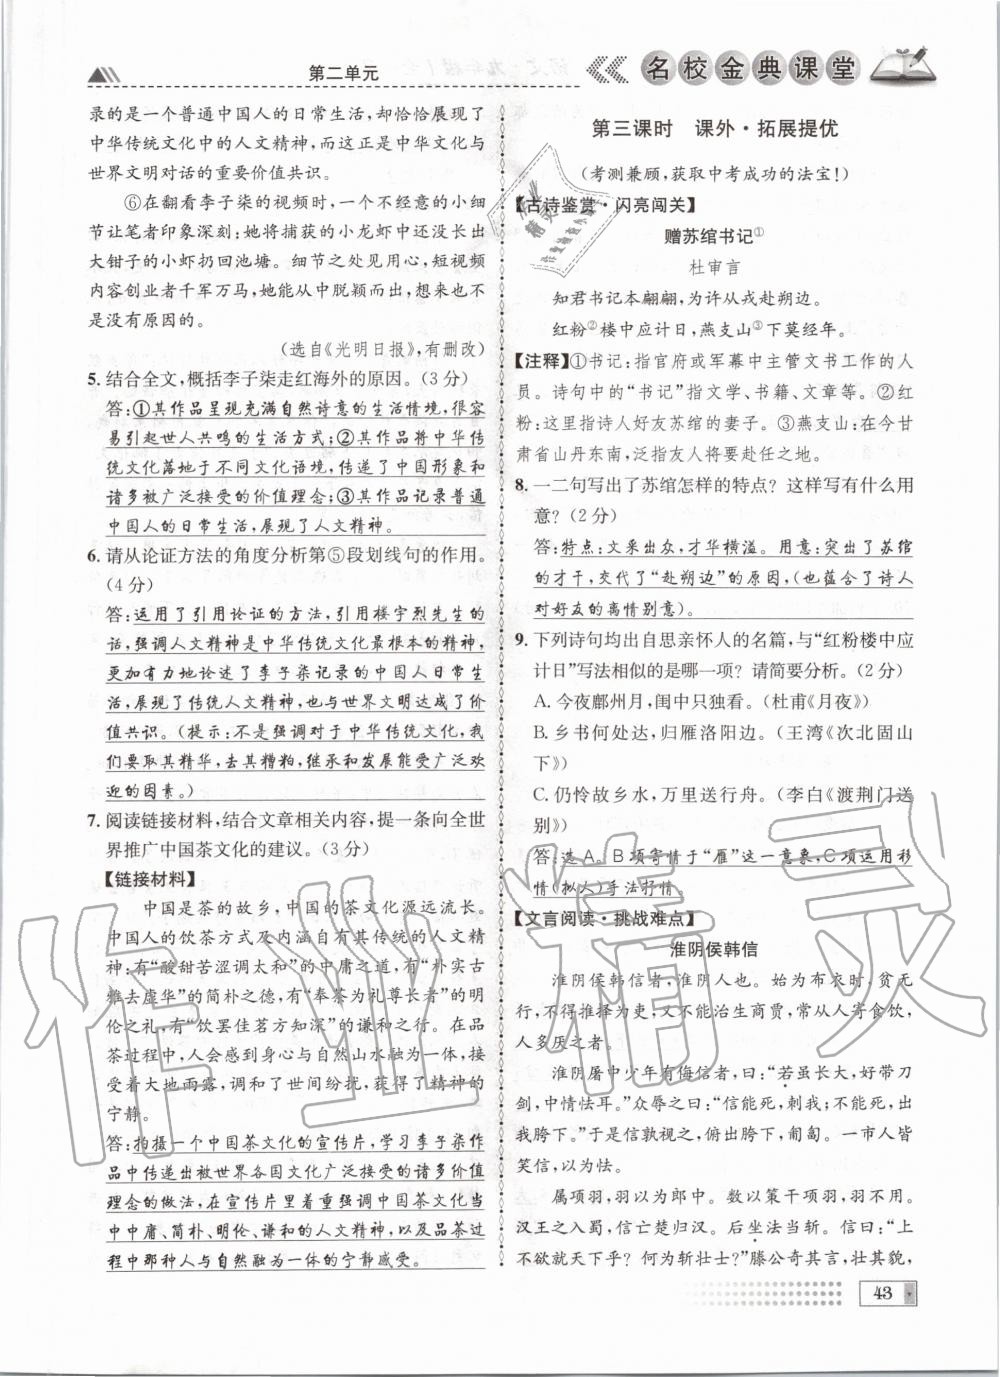 第二单元
名校金典课堂
录的是一个普通中国人的日常生活,却恰恰展现了
中华传统文化中的人文精神,而这正是中华文化与
世界文明对话的重要价值共识。
⑥在翻看李子柒的视频时,一个不经意的小细
节让笔者印象深刻:她将捕获的小龙虾中还没长出
大钳子的小虾扔回池塘。细节之处见用心,短视频
内容创业者千军万马,她能从中脱颖而出,想来也不
是没有原因的。
(选自《光明日报》,有删改)
5. 结合全文,概括李子柒走红海外的原因。(3分)
答:①其作品呈现充满自然诗意的生活情境,很容
易引起世人共鸣的生活方式;②其作品将中华传
统文化落地于不同文化语境,使中国形象和
诸多被广泛接受的价值理念;③其作品记录普通
中国人的日常生活,展现了人文精神。
6. 请从论证方法的角度分析第⑤段划线句的作用。
(4分)
答:运用了引用论证的方法,引用楼宇烈先生的
话,强调人文精神是中华传统文化最根本的精神,
更加有力地论述了李子柒记录的中国人日常生
活,展现了传统人文精神,也与世界文明达成了价
值共识。(提示:不是强调对于中华传统文化,我
们要取其精华,去其糟粕,继承和发展能受广泛欢
迎的因素。)
7. 阅读链接材料,结合文章相关内容,提一条向全世
界推广中国茶文化的建议。(3分)
【链接材料】
中国是茶的故乡,中国的茶文化源远流长。
中国人的饮茶方式及内涵自有其传统的人文精
神:有“酸甜苦涩调太和”的中庸之道,有“朴实古
雅去虚华”的简朴之德,有“奉茶为礼尊长者”的明
伦之礼,有“饮罢佳茗方知深”的谦和之行。在品
茶过程中,人会感到身心与自然山水融为一体,接
受着大地雨露,调和了世间纷扰,获得了精神的
宁静。
答:拍摄一个中国茶文化的宣传片,学习李子柒作
品中传递出被世界各国文化广泛接受的诸多价值
理念的做法,在宣传片里着重强调中国茶文化当
中中庸、简朴、明伦、谦和的人文精神,以及品茶过
程中那种人与自然融为一体的宁静感受。
第三课时 课外·拓展提优
(考测兼顾,获取中考成功的法宝!)
【古诗鉴赏·闪亮闯关】
赠苏绾书记①
杜审言
知君书记本翩翩,为许从戎赴朔边。
红粉②楼中应计日,燕支山③下莫经年。
【注释】①书记:指官府或军幕中主管文书工作的人
员。诗句中的“书记”指文学、书籍、文章等。②红
粉:这里指诗人好友苏绾的妻子。③燕支山:在今甘
肃省山丹东南,泛指友人将要赴任之地。
8. 一二句写出了苏绾怎样的特点?这样写有什么用
意?(2分)
答:特点:文采出众,才华横溢。用意:突出了苏绾
的才干,交代了“赴朔边”的原因,(也蕴含了诗人
对好友的离情别意)。
9. 下列诗句均出自思亲怀人的名篇,与“红粉楼中应
计日”写法相似的是哪一项?请简要分析。(2分)
A. 今夜鄜州月,闺中只独看。(杜甫《月夜》)
B. 乡书何处达,归雁洛阳边。(王湾《次北固山
下》)
C. 仍怜故乡水,万里送行舟。(李白《渡荆门送
别》)
答:选A。B项寄情于“雁”这一意象,C项运用移
情(拟人)手法抒情。
【文言阅读·挑战难点】
淮阴侯韩信
淮阴侯韩信者,淮阴人也。始为布衣时,贫无
行,不得推择为吏,又不能治生商贾,常从人寄食饮,
人多厌之者。
淮阴屠中少年有侮信者,曰:“若虽长大,好带刀
剑,中情怯耳。”众辱之曰:“信能死,刺我;不能死,出
我胯下。”于是信孰视之,俯出胯下,匍匐。一市人皆
笑信,以为怯。
属项羽,羽以为郎中。数以策干项羽,羽不用。
汉王之入蜀,信亡楚归汉。后坐法当斩。信曰:“上
不欲就天下乎?何为斩壮士?”滕公奇其言,壮其貌,
43
作业精灵